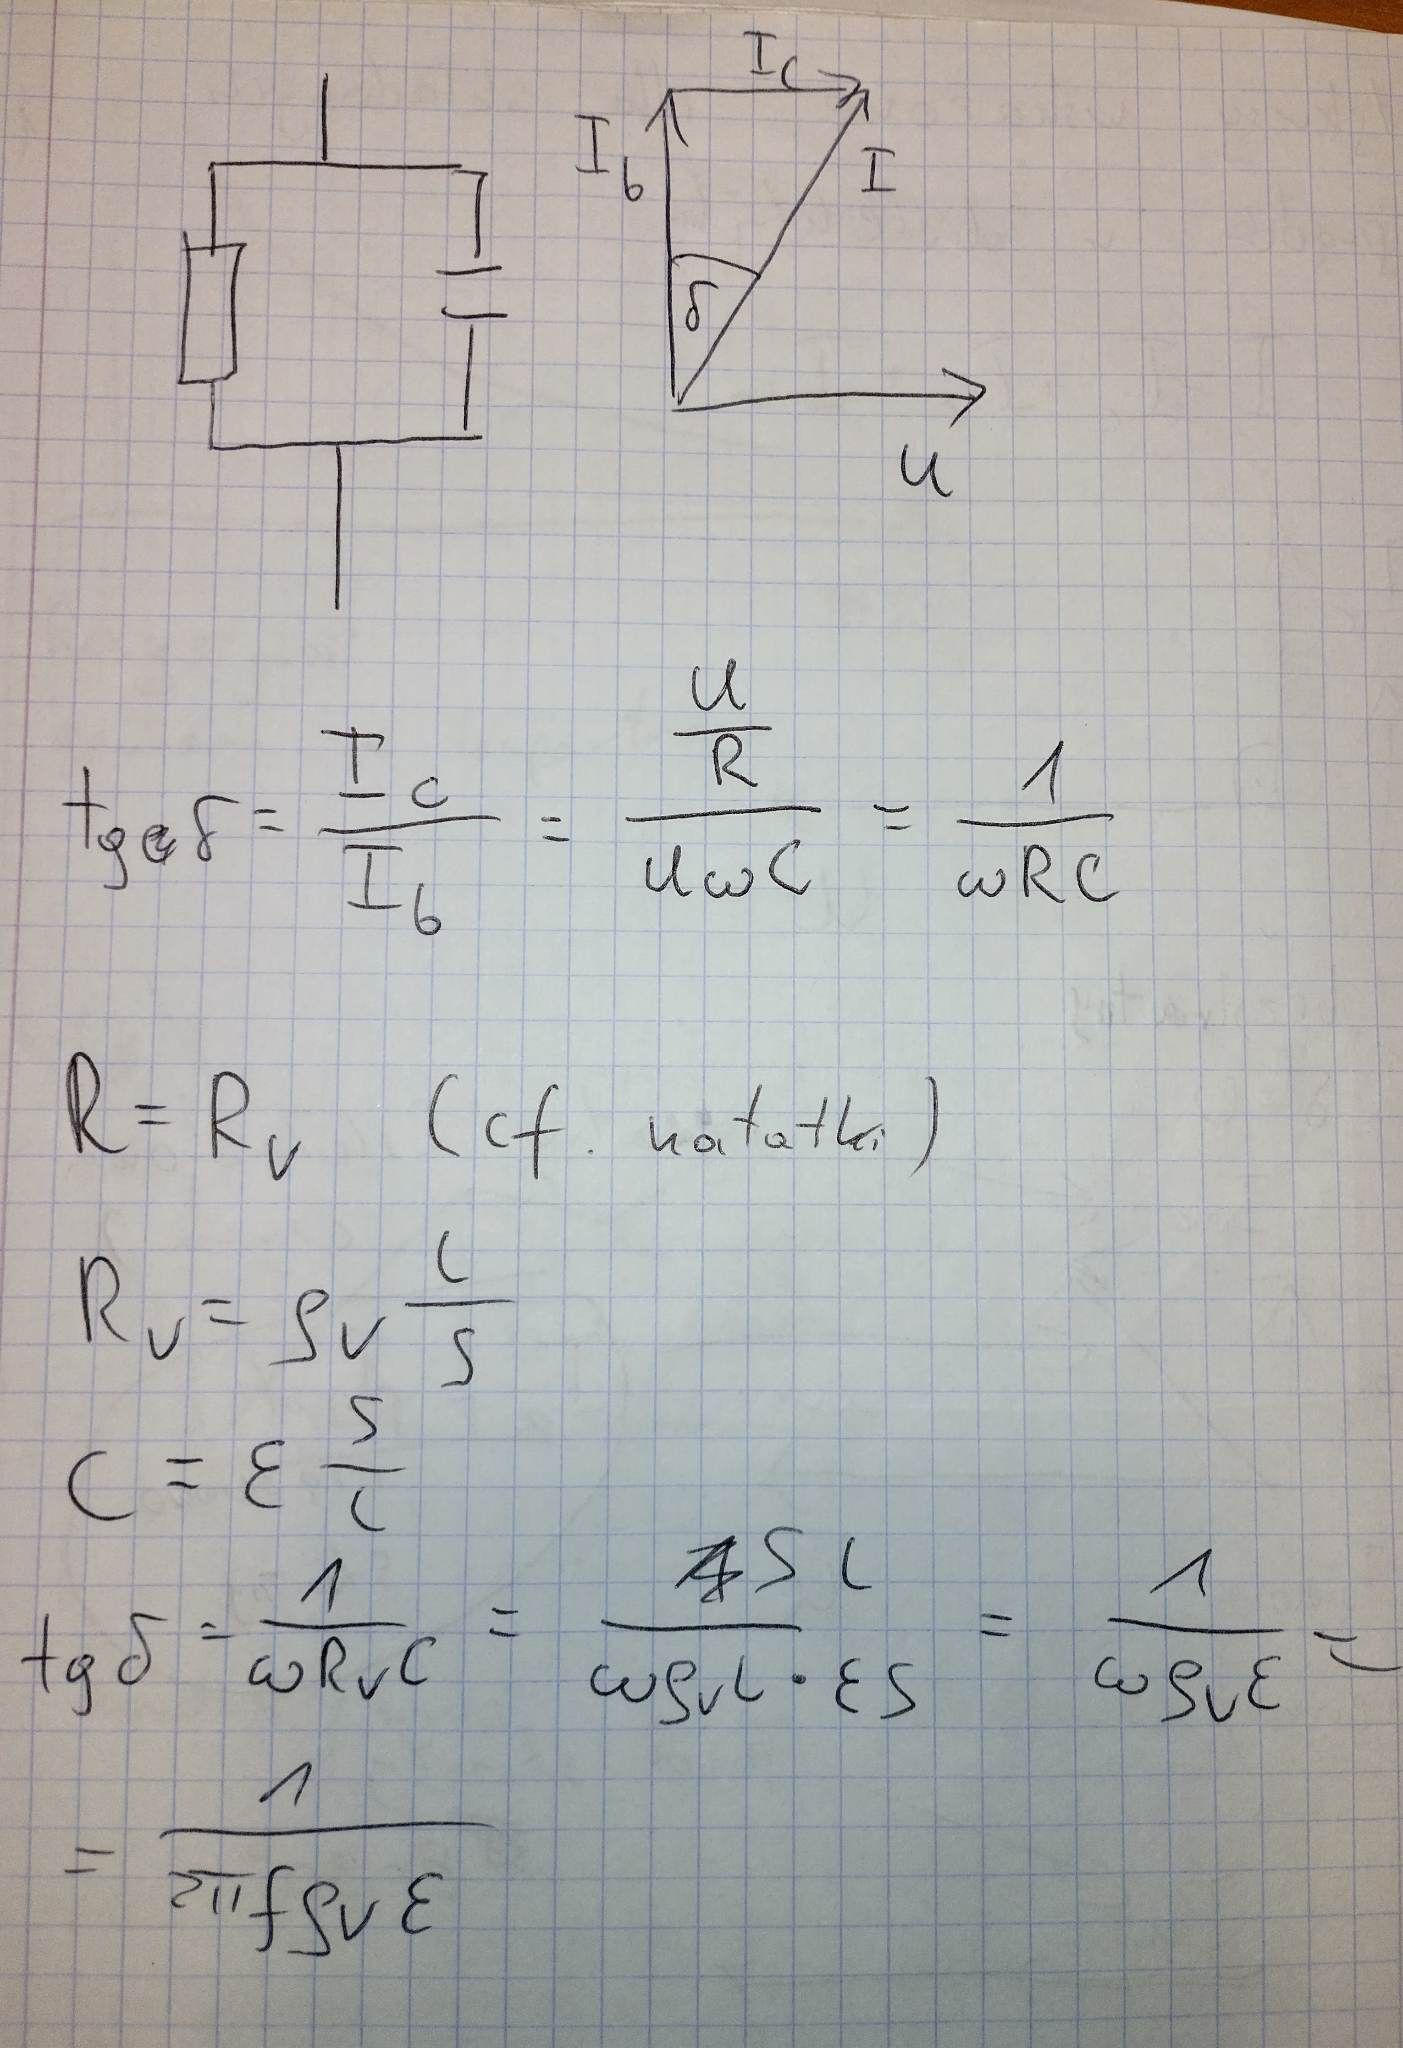 I_c
I_b
I
δ
U
tg δ = I_c / I_b = (U/R) / (UωC) = 1 / (ωRC)
R = R_v (cf. notatki)
R_v = ρ_v l/S
C = ε S/l
tg δ = 1 / (ωR_vC) = S l / (ωρ_v l · ε S) = 1 / (ωρ_vε) =
= 1 / (2πfρ_vε)